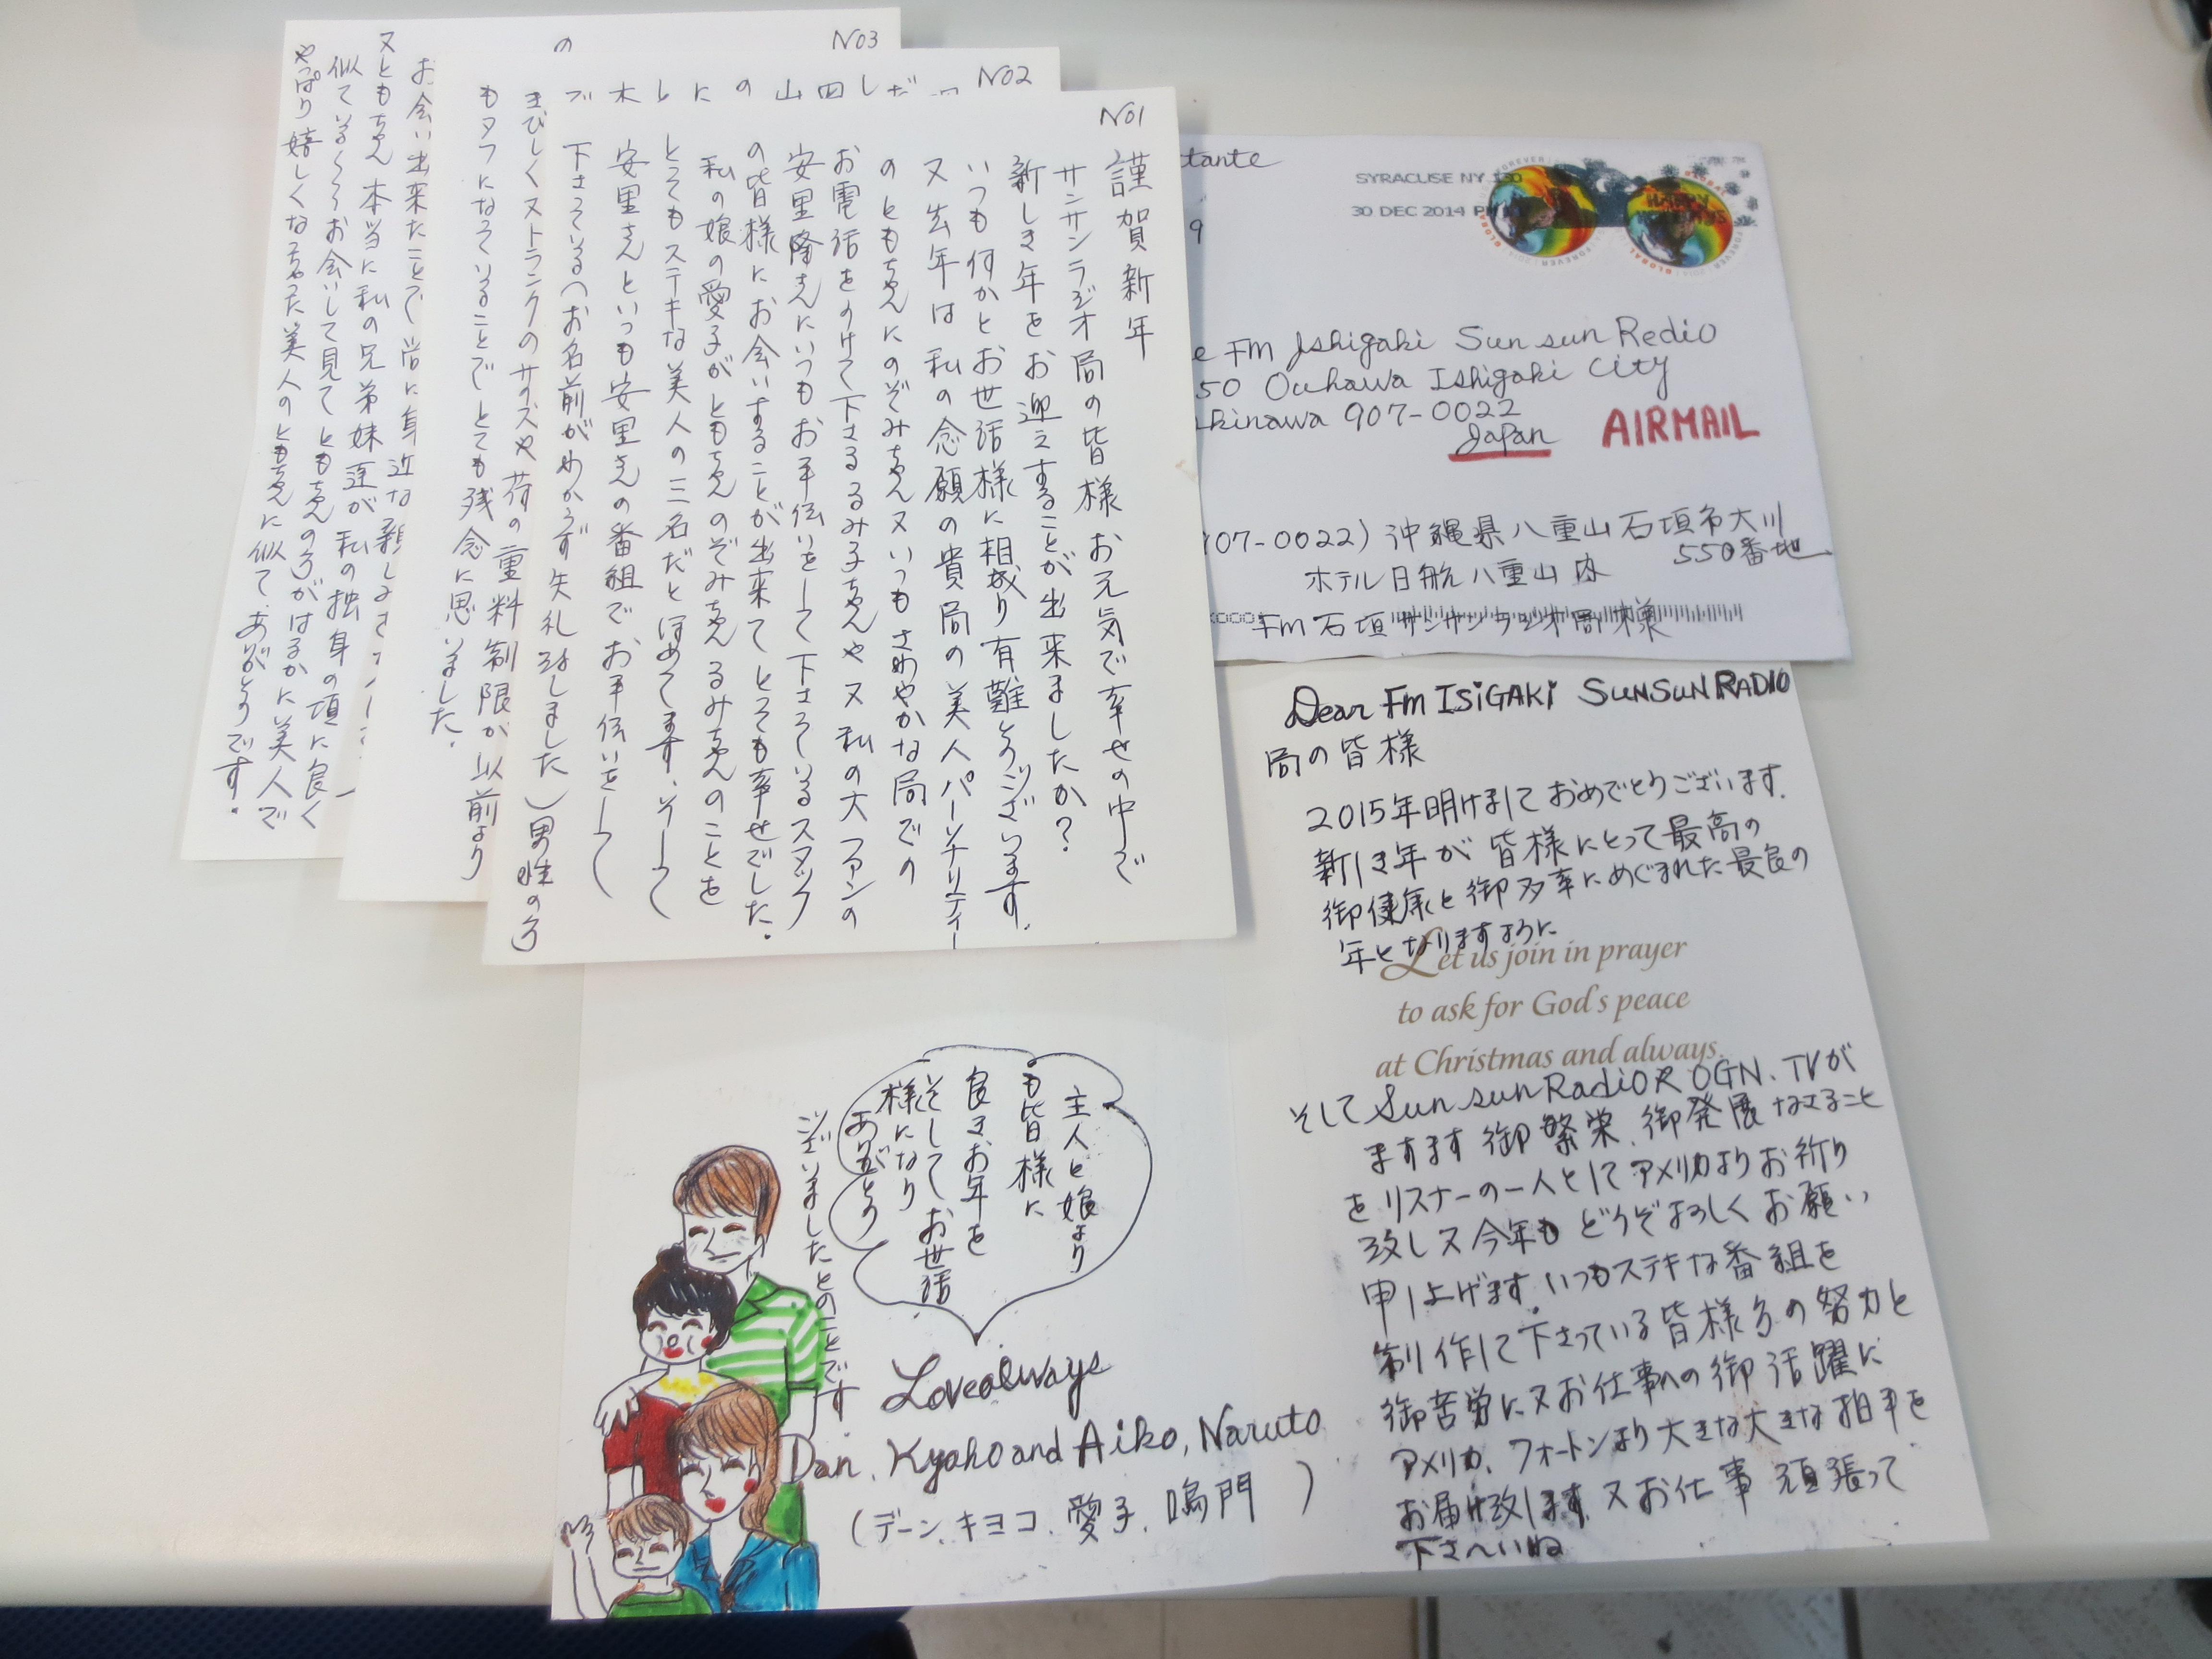 No3
お会い出来たことで尚に身近な親しみさ
又ともちゃん本当に私の兄弟妹達が私の独身の頃に良く
似ている〜〜お会いして見てともちゃんの方がはるかに美人で
やっぱり嬉しくなっちゃった美人のともちゃんに似てありがとうです.
No2
きびしくストランクのサイズや荷の重料制限が以前より
もタフになっていることでとても残念に思いました.
No1
謹賀新年
サンサンラジオ局の皆様お元気で幸せの中で
新しき年をお迎えすることが出来ましたか?
いつも何かとお世話様に相成り有難とうございます.
又去年は私の念願の貴局の美人パーソナリティー
のともちゃんにのぞみちゃん又いつもさわやかな局での
お電話をうけて下さるるみ子ちゃんや又私の大ファンの
安里隆さんにいつもお手伝いをして下さっているスタッフ
の皆様にお会いすることが出来てとっても幸せでした.
私の娘の愛子がともちゃんのぞみちゃんるみちゃんのことを
とってもステキな美人の三名だとほめてます.そして
安里さんといつも安里さんの番組でお手伝いをして
下さっている(お名前がわからず失礼致しました)男性の方
tante
9
SYRACUSE NY 130
30 DEC 2014 PM
FOREVER
GLOBAL
HAPPY
e FM Ishigaki Sun sun Redio
50 Ouhawa Ishigaki City
kinawa 907-0022
Japan
AIRMAIL
907-0022) 沖縄県八重山石垣市大川
550番地
ホテル日航八重山内
Fm石垣サンサンラジオ局様
Dear Fm ISiGAKi SUNSUN RADIO
局の皆様
2015年明けましておめでとうございます.
新しき年が皆様にとって最高の
御健康と御多幸にめぐまれた最良の
年となりますように
Let us join in prayer
to ask for God's peace
at Christmas and always.
そしてSun sun Radio又OGN.TVが
ますます御繁栄、御発展なさること
をリスナーの一人としてアメリカよりお祈り
致し又今年もどうぞよろしくお願い
申し上げます.いつもステキな番組を
制作して下さっている皆様方の努力と
御苦労に又お仕事への御活躍に
アメリカ、フォートンより大きな大きな拍手を
お届け致します.又お仕事頑張って
下さ〜いね
主人と娘より
も皆様に
良きお年を
そしてお世話
様になり
ありがとう
ございましたとのことです.
Love always
Dan, Kyoho and Aiko, Naruto
(デーン、キヨコ、愛子、鳴門)